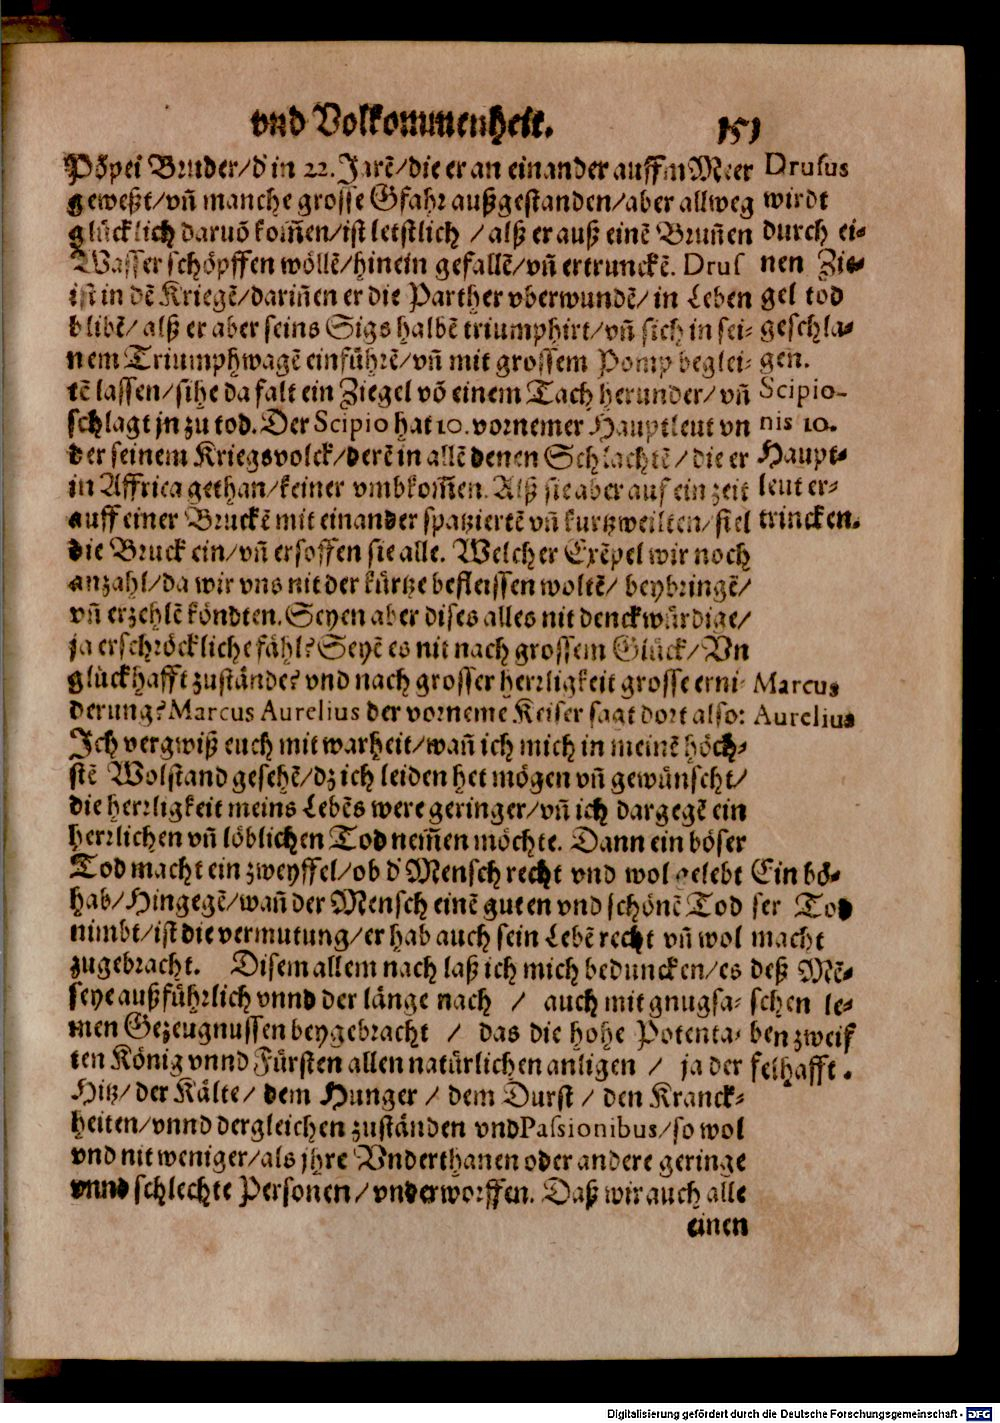 vnd Volkommenheit.
151
Põpei Bruder/d' in 22. Jarē/die er an einander auffm Meer
geweßt/vñ manche grosse Gfahr außgestanden/aber allweg
glücklich daruō kom̃en/ist letstlich /alß er auß einē Brun̄en
Wasser schöpffen wöllē/hinein gefallē/vñ ertrunckē. Drus
ist in dē Kriegē/darin̄en er die Parther vberwundē/in Leben
blibē/alß er aber seins Sigs halbē triumphirt/vñ sich in sei-
nem Triumphwagē einführē/vñ mit grossem Pomp beglei-
tē lassen/sihe da falt ein Ziegel võ einem Tach herunder/vñ
schlagt jn zu tod. Der Scipio hat 10. vornemer Hauptleut vn
der seinem Kriegsvolck/derē in allē denen Schlachtē/die er
in Affrica gethan/keiner vmbkom̃en. Alß sie aber auf ein zeit
auff einer Bruckē mit einander spatziertē vñ kurtzweilten/fiel
die Bruck ein/vñ ersoffen sie alle. Welcher Exēpel wir noch
anzahl/da wir vns nit der kürtze befleissen woltē/ beybringē/
vñ erzehlē köndten. Seyen aber dises alles nit denckwürdige/
ja erschröckliche fähl? Seyē es nit nach grossem Glück/Vn
glückhafft zustände? vnd nach grosser herrligkeit grosse erni-
derung? Marcus Aurelius der vorneme Keiser sagt dort also:
Ich vergwiß euch mit warheit/wañ ich mich in meinē höch-
stē Wolstand gesehē/dz ich leiden het mögen vñ gewünscht/
die herrligkeit meins Lebēs were geringer/vñ ich dargegē ein
herrlichen vñ löblichen Tod nem̃en möchte. Dann ein böser
Tod macht ein zweyffel/ob d' Mensch recht vnd wol gelebt
hab/Hingegē/wañ der Mensch einē guten vnd schönē Tod
nimbt/ist die vermutung/er hab auch sein Lebē recht vñ wol
zugebracht. Disem allem nach laß ich mich beduncken/es
seye außführlich vnnd der länge nach / auch mit gnugsa-
men Gezeugnussen beygebracht / das die hohe Potenta-
ten König vnnd Fürsten allen natürlichen anligen / ja der
Hitz/der Kälte/ dem Hunger / dem Durst / den Kranck-
heiten/vnnd dergleichen zuständen vnd Passionibus/so wol
vnd nit weniger/als jhre Vnderthanen oder andere geringe
vnnd schlechte Personen/vnderworffen. Daß wir auch alle
einen
Drusus
wirdt
durch ei-
nen Zie-
gel tod
geschla-
gen.
Scipio-
nis 10.
Haupt-
leut er-
trincken.
Marcus
Aurelius
Ein bö-
ser Tod
macht
deß Mē-
schen le-
ben zweif
felhafft.
Digitalisierung gefördert durch die Deutsche Forschungsgemeinschaft - DFG